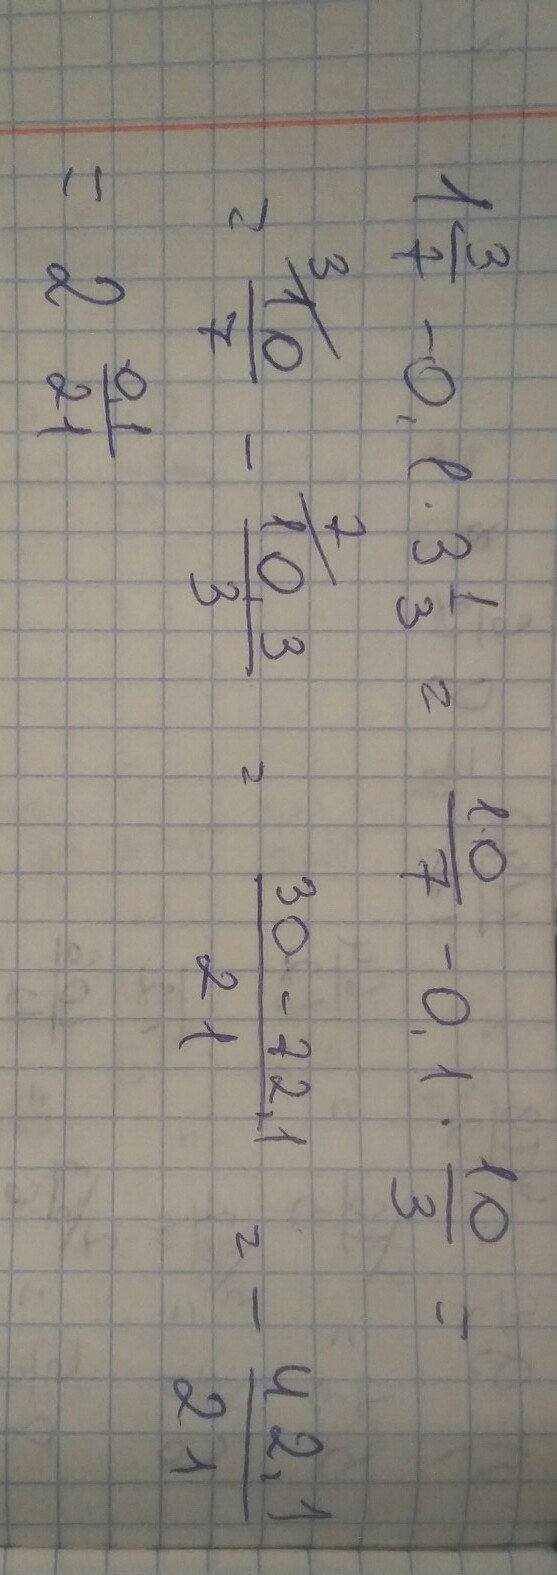 1 3/7 - 0,1 · 3 1/3 = 10/7 - 0,1 · 10/3 =
= 10/7 ^3/ - 10,3/3 ^7/ = 30 - 72,1/21 = - 42,1/21
= 2 0,1/21